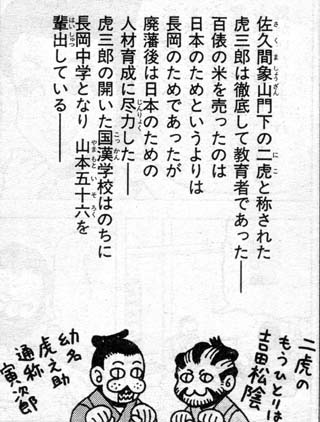 佐久間象山門下の二虎と称された
虎三郎は徹底して教育者であった――
百俵の米を売ったのは
日本のためというよりは
長岡のためであったが
廃藩後は日本のための
人材育成に尽力した――
虎三郎の開いた国漢学校はのちに
長岡中学となり 山本五十六を
輩出している――
二虎の
もうひとりは
吉田松陰
幼名
虎之助
通称
寅次郎